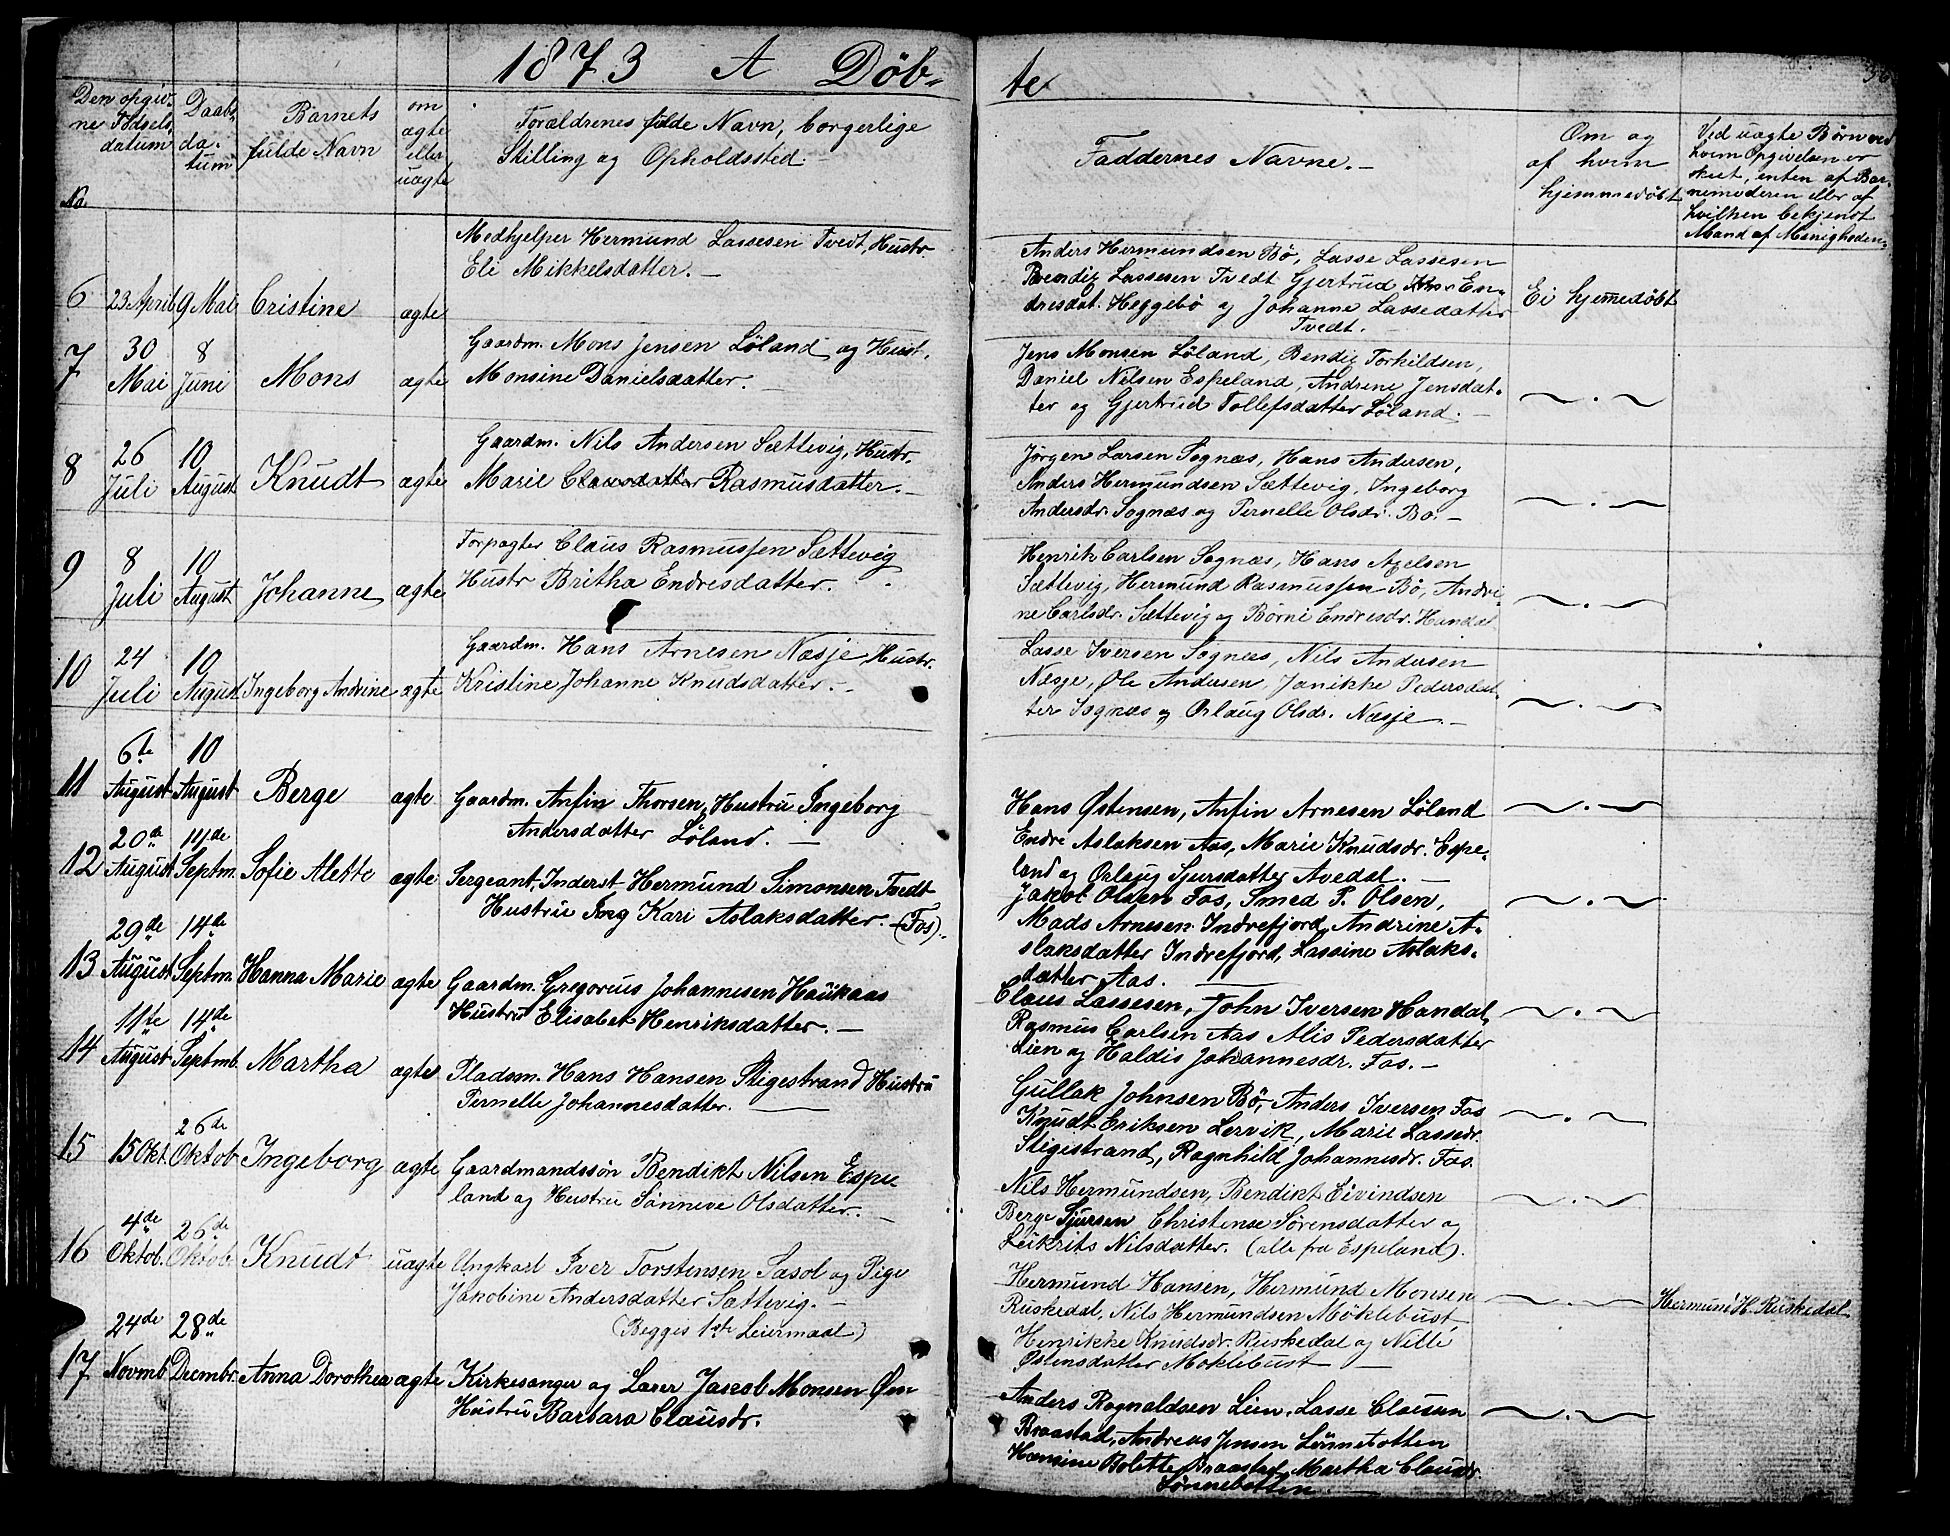 1873 A Døb-
te
Den opgiv-
ne Fødsels-
datum
Daabs-
da-
tum
Barnets
fulde Navn
om
ægte
eller
uægte
Forældrenes fulde Navn, borgerlige
Stilling og Opholdssted.
Faddernes Navne.
Om og
af hvem
hjemmedøbt
Ved uægte Børn ved
hvem Opgivelsen er
skeet, enten af Bar-
nemoderen eller af
hvilken bekjendt
Mand af Menigheden.
No.
Medhjelper Hermund Lassesen Tvedt, Hustr.
Eli Mikkelsdatter.
6 23 April 9 Mai Cristine ægte
Anders Hermundsen Bø, Lasse Lassesen
Bendig Lassesen Tvedt Gjertrud En-
dresdat. Heggebø og Johanne Lassedatter
Tvedt.
Ei hjemedøbt
7 30 Mai 8 Juni Mons ægte
Gaardm. Mons Jensen Løland og Hust.
Monsine Danielsdatter.
Jens Monsen Løland, Bendig Torkildsen,
Daniel Nilsen Espeland, Andrine Jensdat-
ter og Gjertrud Tollefsdatter Løland.
8 26 Juli 10 August Knudt ægte
Gaardm. Nils Andersen Sættevig, Hustr.
Marie Clausdatter Rasmusdatter.
Jørgen Larsen Sognæs, Hans Andersen,
Anders Hermundsen Sættevig, Ingeborg
Andersdr. Sognæs og Pernelle Olsdr. Bø.
9 8 Juli 10 August Johanne ægte
Forpagter Claus Rasmussen Sættevig
Hustr Britha Endresdatter.
Henrik Carlsen Sognæs, Hans Axelsen
Sættevig, Hermund Rasmussen Bø, Andri-
ne Carlsdr. Sættevig og Børni Endresdr. Handal
10 24 Juli 10 August Ingeborg Andrine ægte
Gaardm. Hans Arnesen Næsje, Hustr.
Kristine Johanne Knudsdatter.
Lasse Iversen Sognæs, Nils Andersen
Næsje, Ole Andersen, Janikke Pedersdat-
ter Sognæs og Orlaug Olsdr. Næsje.
11 6te August 10 August Berge ægte
Gaardm. Anfin Thorsen, Hustru Ingeborg
Andersdatter Løland.
Hans Østensen, Anfin Arnesen Løland
Endre Aslaksen Aas, Marie Knudsdr. Espe-
land og Orlaug Sjursdatter Avedal.
12 20de August 14de Septm. Sofie Alette ægte
Sergeant, Inderst Hermund Simonsen Tvedt
Hustru Kari Aslaksdatter. (Fos).
Jakob Olsen Fos, Smed P. Olsen,
Mads Arnesen Indrefjord, Andrine A-
slaksdatter Indrefjord, Lassine Aslaks-
datter Aas.
13 29de August 14de Septm. Hanna Marie ægte
Gaardm. Gregorius Johannesen Haukaas
Hustru Elisabet Henriksdatter.
Claus Lassesen, John Iversen Handal,
Rasmus Carlsen Aas Alis Pedersdatter
Lien og Haldis Johannesdr. Fos.
14 11te August 14de Septmb. Martha ægte
Pladsm. Hans Hansen Stigestrand Hustru
Pernelle Johannesdatter.
Gullak Johnsen Bø, Anders Iversen Fos
Knudt Eriksen Lervik, Marie Lassedr.
Stigestrand, Ragnhild Johannesdr. Fos.
15 15 Okt. 26de Oktob. Ingeborg ægte
Gaardmandssøn Bendikt Nilsen Espe
land og Hustru Sønneve Olsdatter.
Nils Hermundsen, Bendikt Eivindsen
Berge Sjursen Christense Sørensdatter og
Nilsdatter. (alle fra Espeland).
16 4de Oktob. 26de Oktob. Knudt uægte
Ungkarl Iver Torstensen Sasol og Pige
Jakobine Andersdatter Sættevig.
(Begges 1ste Leiermaal)
Hermund Hansen, Hermund Monsen
Ruskedal, Nils Hermundsen Möklebust,
Henrikke Knudsdr. Ruskedal og Nille
Østensdatter Moklebust
Hermund H. Ruskedal
17 24de Novmb. 28de Decmbr. Anna Dorothea ægte
Kirkesanger og Lærer Jacob Monsen Øen
Hustru Barbara Clausdr.
Anders Rognaldsen Lien, Lasse Clausen
Braastad, Andreas Jensen
Hansine Bolette Braastad, Martha Clausdr.